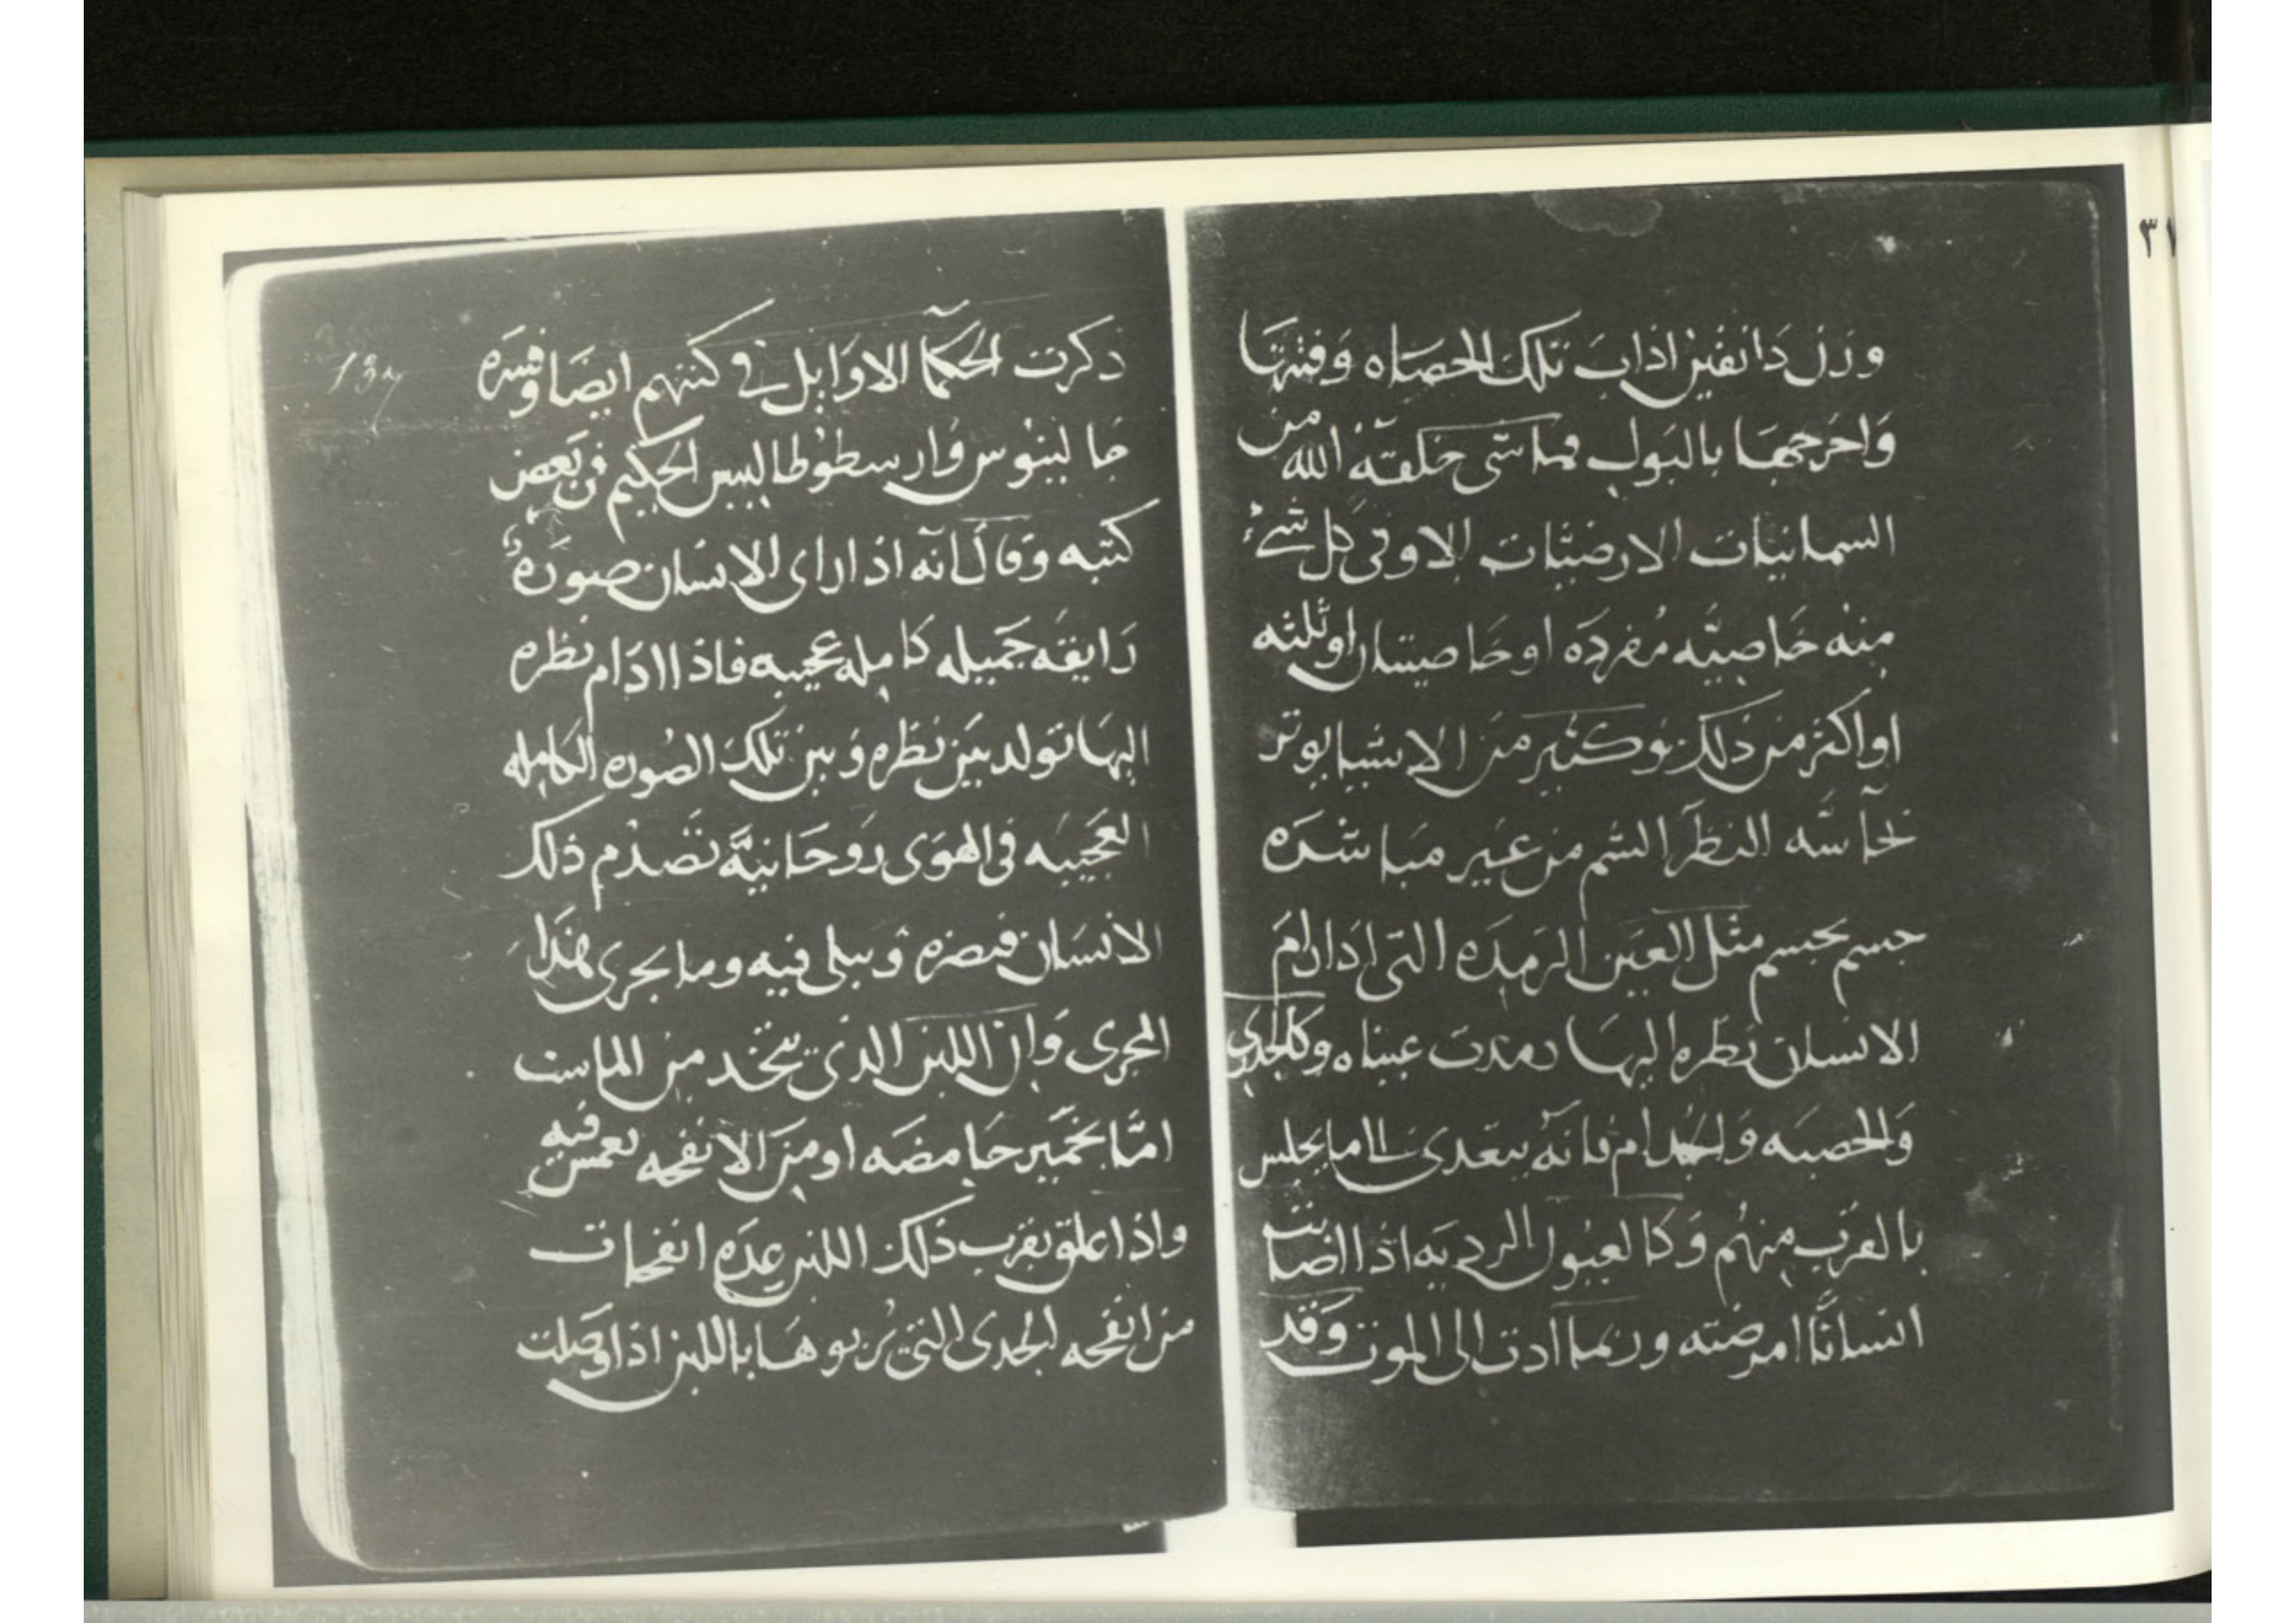 ٣١
وزن دانقين اذاب تلك الحصاه وفتتها
واخرجها بالبول فما شى خلقه الله من
السمانيات الارضيات الاوفى كل شىء
منه خاصيه مفرده او خاصيتان او ثلثه
او اكثر من ذلك وكثير من الاشيا يوثر
بحاسه النظر الشم من غير مباشره
جسم بجسم مثل العين الرمده التى اذا ادام
الانسان نظره اليها رمدت عيناه وكالجدرى
والحصبه والجدام فانه يتعدى الى ما يجلس
بالقرب منهم وكالعيون الرديه اذا اصابت
انسانًا امرضته وربما ادت الى الموت وقد
137
ذكرت الحكما الاوايل فى كتبهم ايضا وفسره
جالينوس وارسطوطاليس الحكيم فى بعض
كتبه وقال انه اذا راى الانسان صوره
رايقه جميله كامله عجيبه فاذا ادام نظره
اليها تولد بين نظره وبين تلك الصوره الكامله
العجيبه فى الهوى روحانيه تصدم ذلك
الانسان فتضره ويبلى فيه وما يجرى هذا
المجرى وان اللبن الذى يتخد من الماست
اما بخمير حامضه او من الانفحه تغمس فيه
واذا علق بقرب ذلك اللبن عده انفحات
من انفحه الجدى التى يربوها باللبن اذا وصلت